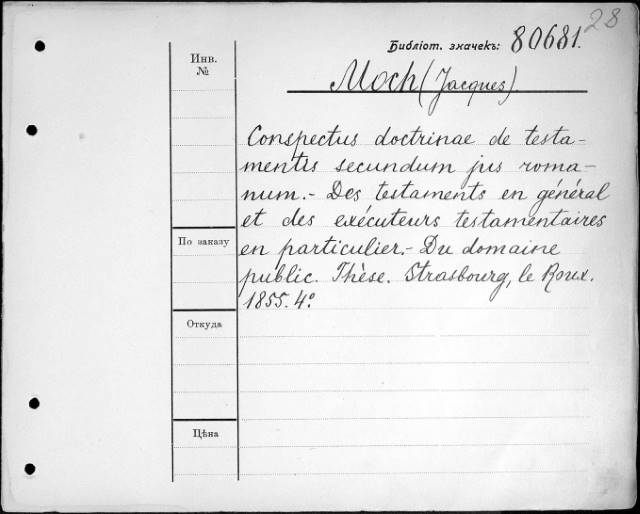 28
Библіот. значекъ: 80681.
Инв.
№
Moch (Jacques).
Conspectus doctrinae de testa-
mentis secundum jus roma-
num.- Des testaments en général
et des exécuteurs testamentaires
По заказу
en particulier.- Du domaine
public. Thèse. Strasbourg, le Roux.
1855. 4º
Откуда
Цѣна